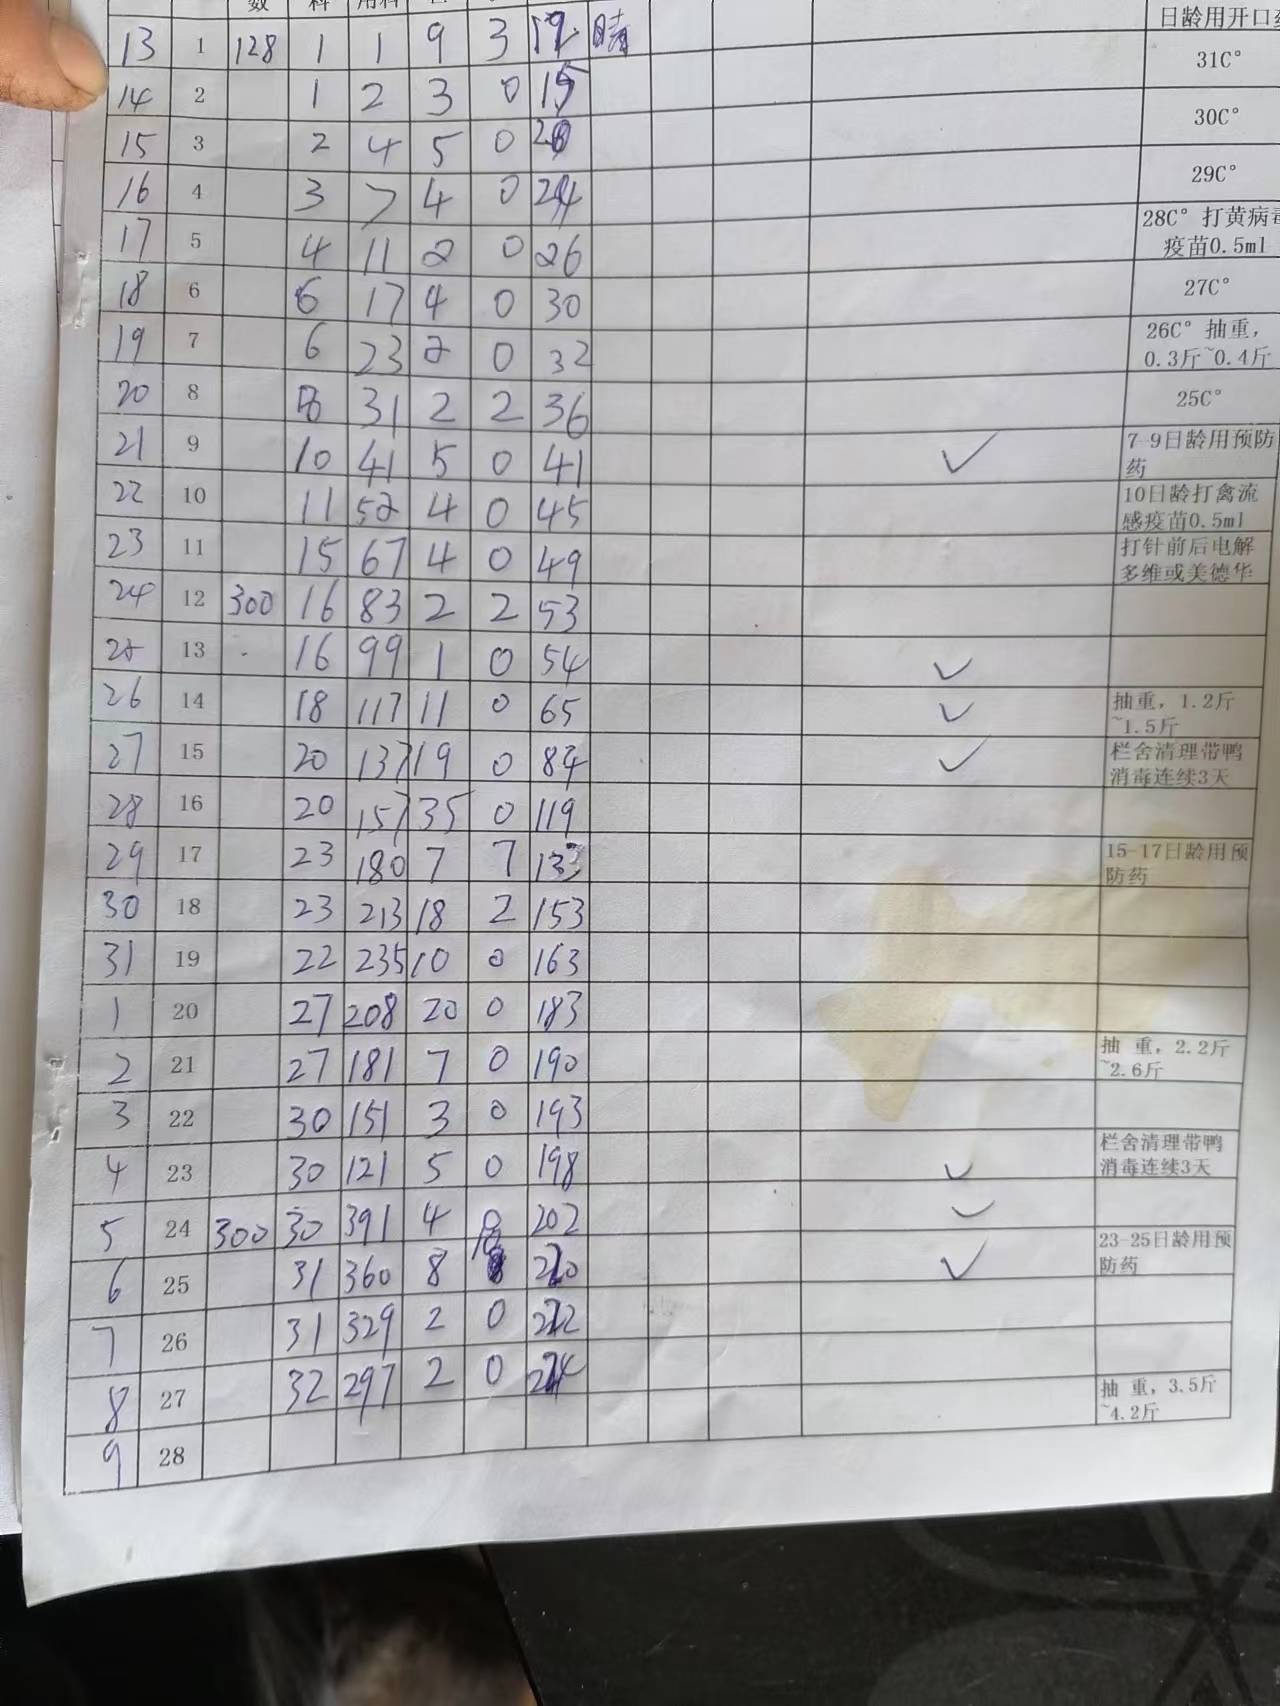 数 料 用料 日龄用开口
13 1 128 1 1 9 3 12 晴 31C°
14 2 1 2 3 0 15 30C°
15 3 2 4 5 0 20
16 4 3 7 4 0 24 29C°
17 5 4 11 2 0 26 28C° 打黄病毒
疫苗0.5ml
18 6 6 17 4 0 30 27C°
19 7 6 23 2 0 32 26C° 抽重,
0.3斤~0.4斤
20 8 8 31 2 2 36 25C°
21 9 10 41 5 0 41 ✓ 7-9日龄用预防
药
22 10 11 52 4 0 45 10日龄打禽流
感疫苗0.5ml
23 11 15 67 4 0 49 打针前后电解
多维或美德华
24 12 300 16 83 2 2 53
25 13 16 99 1 0 54 ✓
26 14 18 117 11 0 65 ✓ 抽重, 1.2斤
~1.5斤
27 15 20 137 19 0 84 ✓ 栏舍清理带鸭
消毒连续3天
28 16 20 157 35 0 119
29 17 23 180 7 7 133 15-17日龄用预
防药
30 18 23 213 18 2 153
31 19 22 235 10 0 163
1 20 27 208 20 0 183
2 21 27 181 7 0 190 抽 重, 2.2斤
~2.6斤
3 22 30 151 3 0 193
4 23 30 121 5 0 198 ✓ 栏舍清理带鸭
消毒连续3天
5 24 300 30 391 4 202 ✓
6 25 31 360 8 210 ✓ 23-25日龄用预
防药
7 26 31 329 2 0 212
8 27 32 297 2 0 214 抽 重, 3.5斤
~4.2斤
9 28